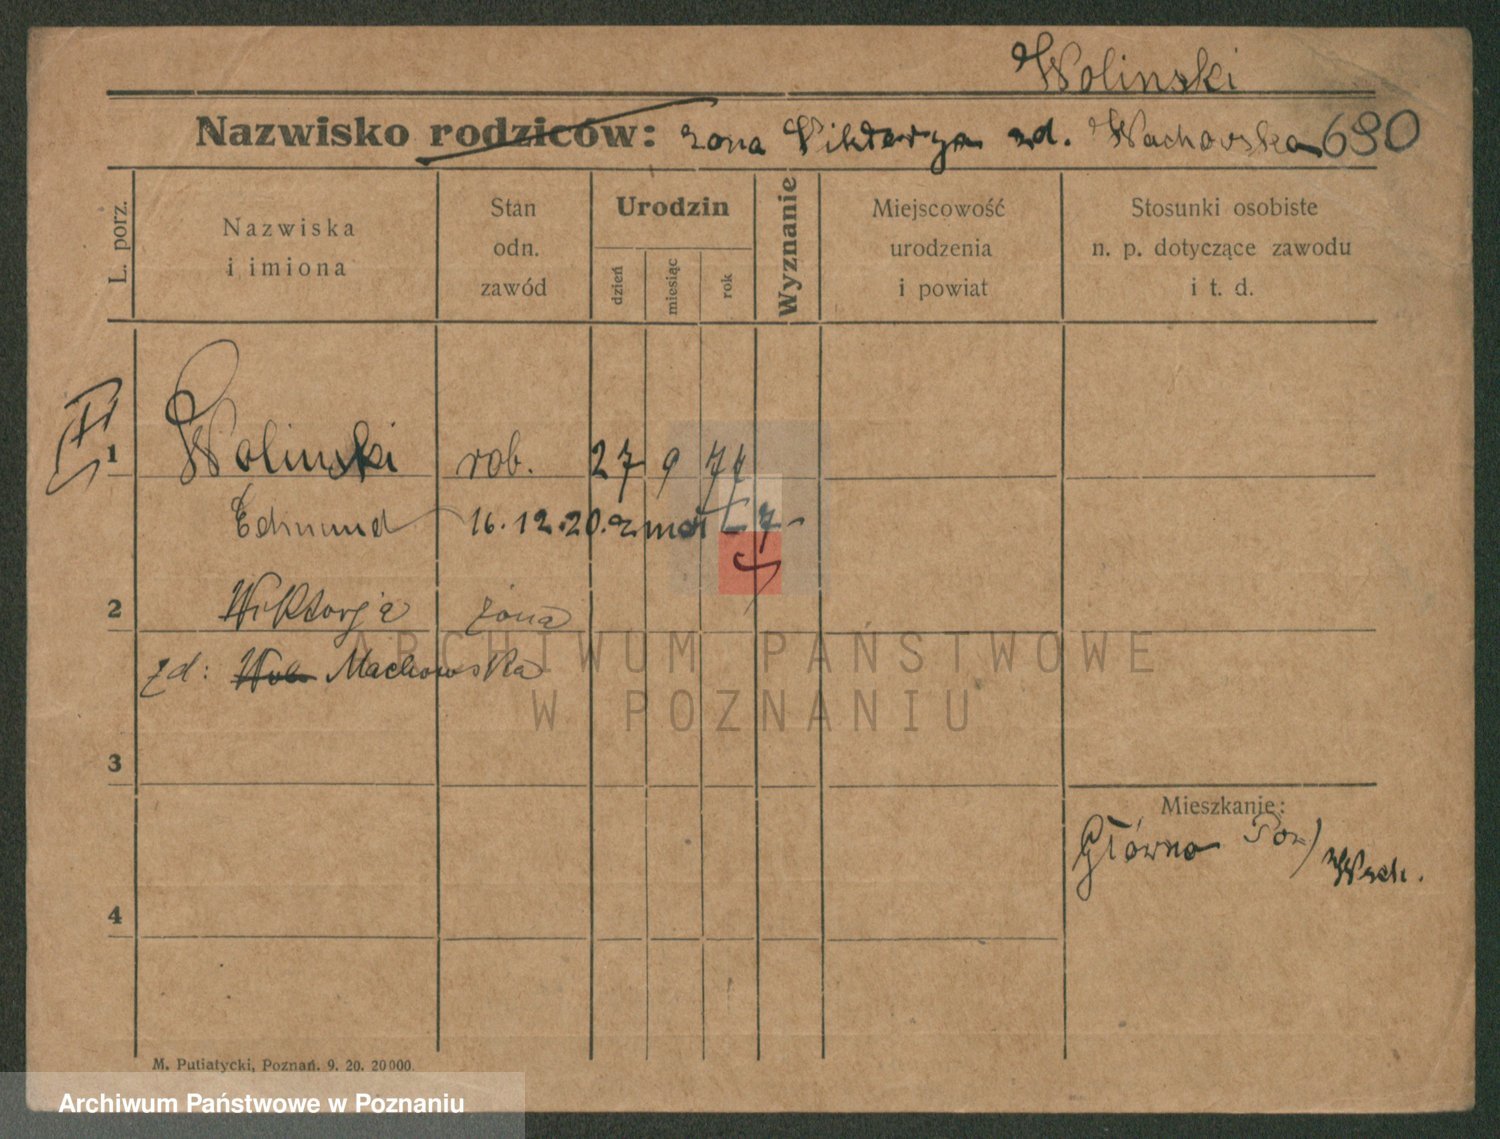 Wolinski
Nazwisko rodziców: zona Viktorya zd. Wachowska 690
L. porz.
Nazwiska
i imiona
Stan
odn.
zawód
Urodzin
dzień
miesiąc
rok
Wyznanie
Miejscowość
urodzenia
i powiat
Stosunki osobiste
n. p. dotyczące zawodu
i t. d.
1 Wolinski rob. 27 9
Edmund 16.12.20.
2 Wiktorja żona
zd: Machowska
ARCHIWUM PAŃSTWOWE
W POZNANIU
3
Mieszkanie:
Główno
4
M. Putiatycki, Poznań. 9. 20. 20000.
Archiwum Państwowe w Poznaniu